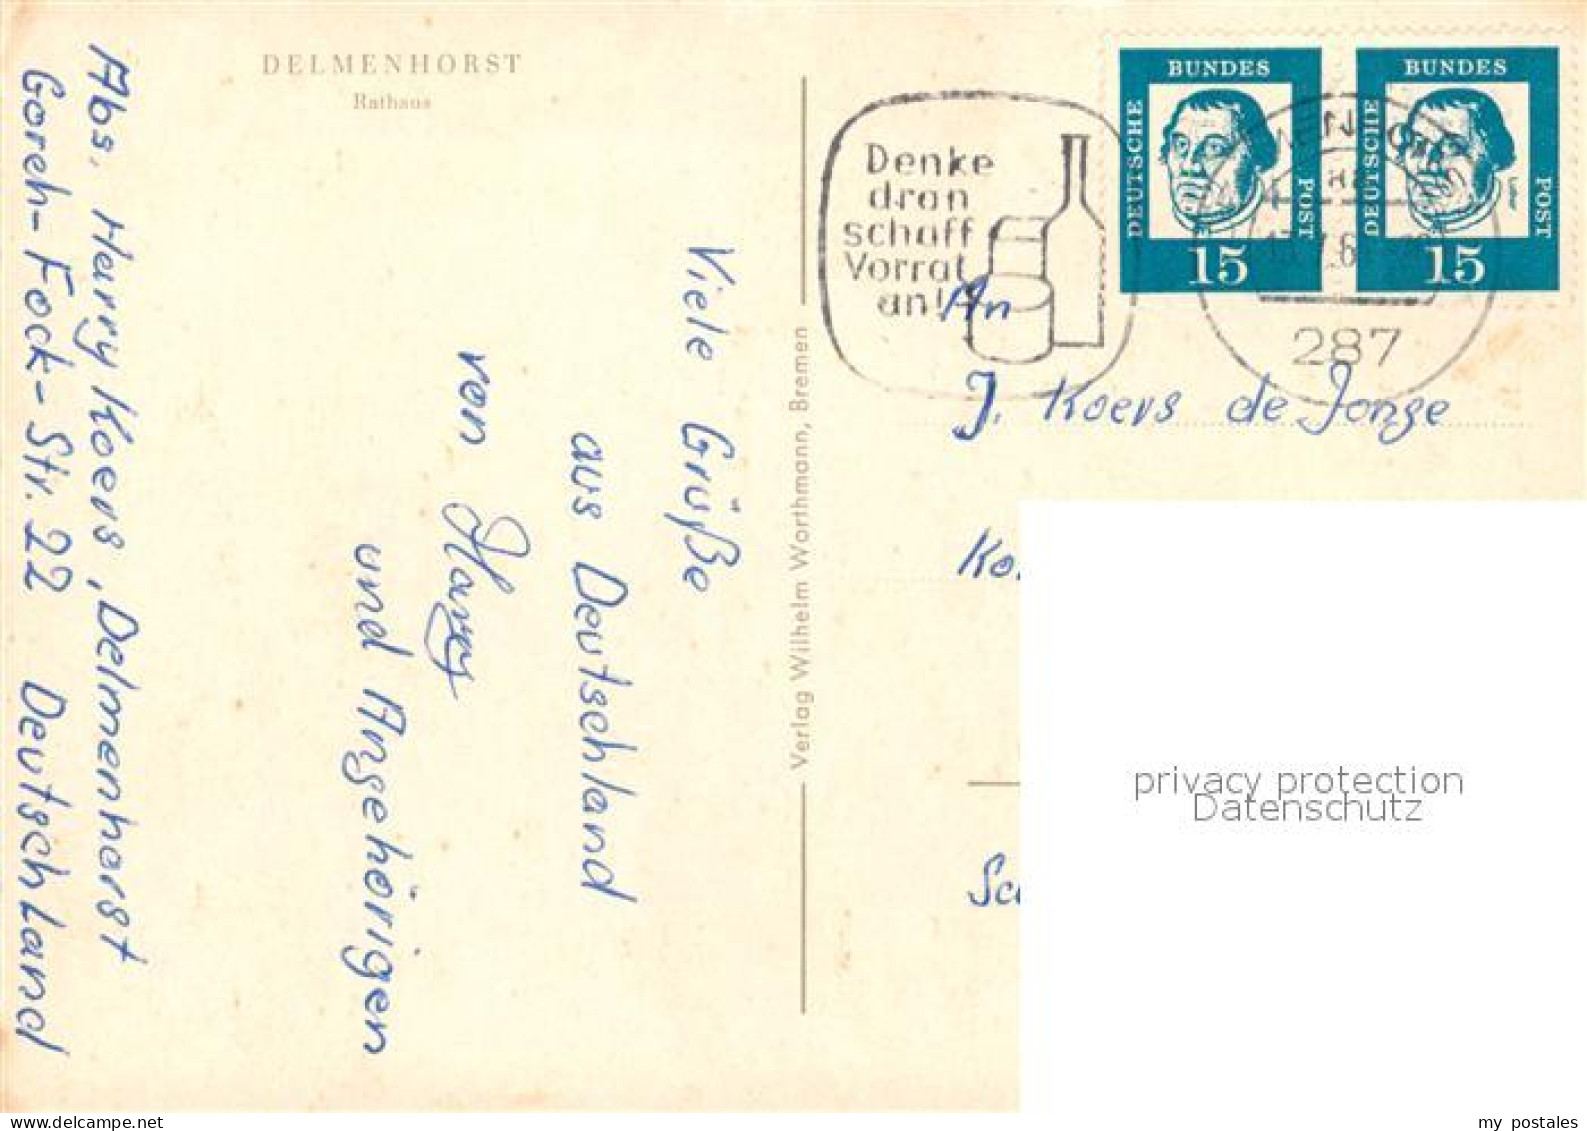 DELMENHORST
Rathaus
Abs. Harry Koers, Delmenhorst
Goreh-Fock-Str. 22 Deutschland
Viele Grüße
aus Deutschland
von Harry
und Angehörigen
Verlag Wilhelm Worthmann, Bremen
Denke
dran
schaff
Vorrat
an!
DEUTSCHE BUNDES POST
15
DEUTSCHE BUNDES POST
15
287
An
J. Koers de Jonge
Ko
Sc
privacy protection
Datenschutz
my postales